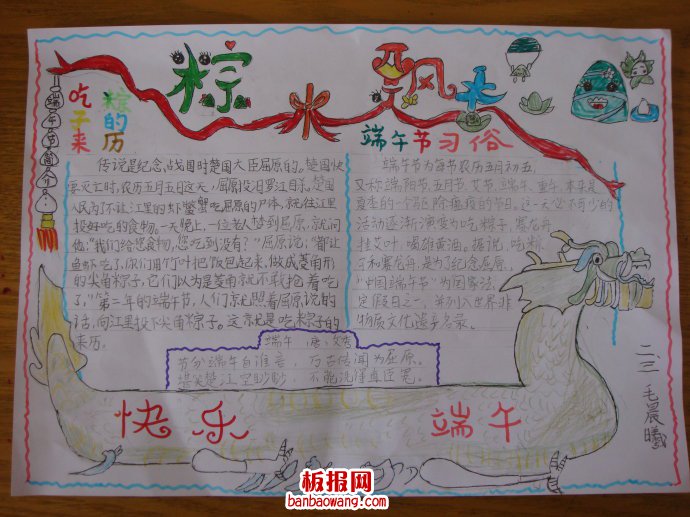 粽米飘香
端午节简介:
吃粽
子的
来历
传说是纪念战国时楚国大臣屈原的。楚国快
要灭亡时,农历五月五日这天,屈原投汨罗江自杀,楚国
人民为了不让江里的虾蟹蟹吃屈原的尸体,就往江里
投好吃的食物。一天晚上,一位老人梦到屈原,就问
他:"我们给您食物,您吃到没有?"屈原说:"都让
鱼虾吃了,你们用竹叶把饭包起来,做成菱角形
的尖角粽子,它们以为是菱角就不敢抢着吃
了。"第二年的端午节,人们就照着屈原说的
话,向江里投下尖角粽子。这就是吃粽子的
来历。
端午节习俗
端午节为每节农历五月初五,
又称端阳节、五月节、艾节、端午、重午,本来是
夏季的一个驱除瘟疫的节日。这一天必不可少的
活动逐渐演变为吃粽子,赛龙舟,
挂艾叶,喝雄黄酒。据说,吃粽
子和赛龙舟,是为了纪念屈原。
"中国端午节"为国家法
定假日之一,并列入世界非
物质文化遗产名录。
端午 唐、文秀
节分端午自谁言,万古传闻为屈原。
堪笑楚江空渺渺,不能洗得直臣冤。
快乐 端午
二、三 毛晨曦
板报网
banbaowang.com